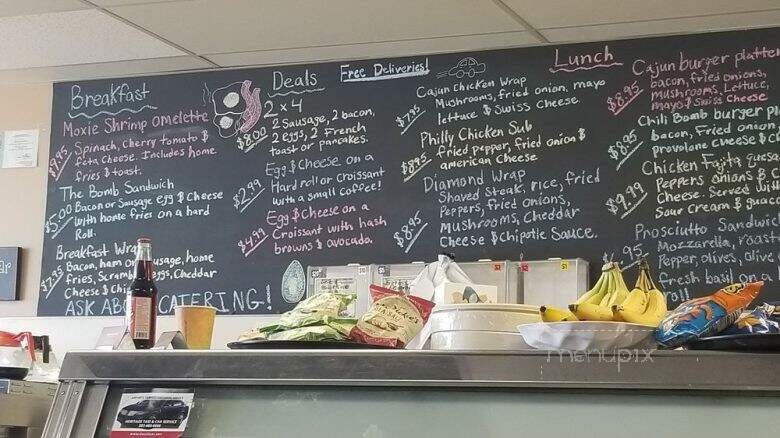 Breakfast
Moxie Shrimp omelette
$9.95 Spinach, cherry tomato &
feta cheese. Includes home
fries & toast.
The Bomb Sandwich
$5.00 Bacon or Sausage egg & cheese
with home fries on a hard
Roll.
Breakfast Wrap
$7.95 Bacon, ham or sausage, home
fries, Scrambled eggs, Cheddar
Cheese &
ASK ABOUT CATERING!
Deals
2 x 4
$8.00 2 Sausage, 2 bacon,
2 eggs, 2 French
toast or pancakes.
Egg & Cheese on a
$2.99 Hard roll or Croissant
with a small coffee!
Egg & Cheese on a
$4.99 Croissant with hash
browns & avocado.
Free Deliveries!
Lunch
Cajun chicken Wrap
$7.95 Mushrooms, fried onion, mayo
lettuce & Swiss cheese
Philly Chicken Sub
$8.95 fried pepper, fried onion &
american Cheese
Diamond Wrap
Shaved Steak, rice, fried
Peppers, fried onions,
$8.95 Mushrooms, Cheddar
Cheese & Chipotle Sauce.
Cajun burger platter
$8.95 bacon, fried onions,
mushrooms, Lettuce,
mayo & Swiss Cheese
Chili Bomb burger
$8.95 bacon, Fried onion
provolone cheese &
Chicken Fajita
$9.99 Peppers onions &
Cheese. Served
Sour cream &
Prosciutto
.95 Mozzarella,
Pepper, olives,
fresh basil on a
roll
HERITAGE TAXI & CAR SERVICE
menupix